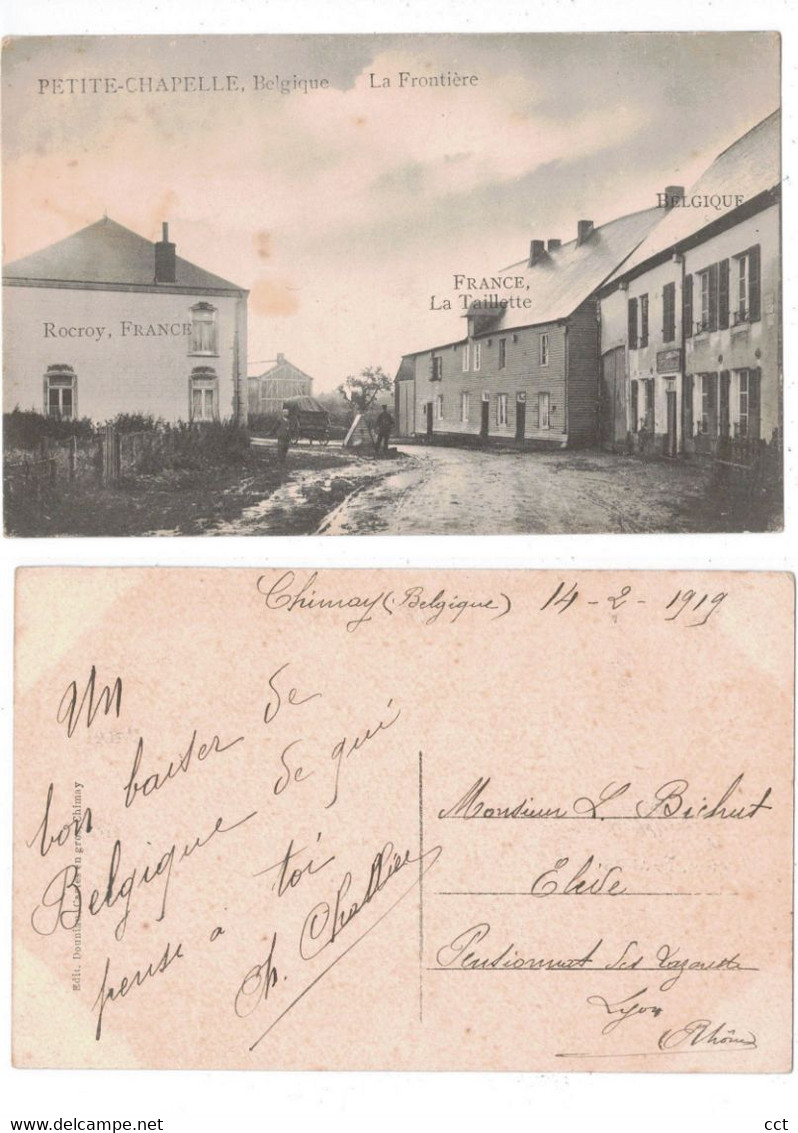 PETITE-CHAPELLE, Belgique La Frontière
BELGIQUE
FRANCE,
La Taillette
Rocroy, FRANCE
Chimay (Belgique) 14-2-1919
Un
bon baiser de
Belgique de qui
pense a toi
Ch. Challier
Edit. Douniau, Cartes en gros, Chimay
Monsieur L. Bichut
Elève
Pensionnat des Lazaristes
Lyon
(Rhône)
cct